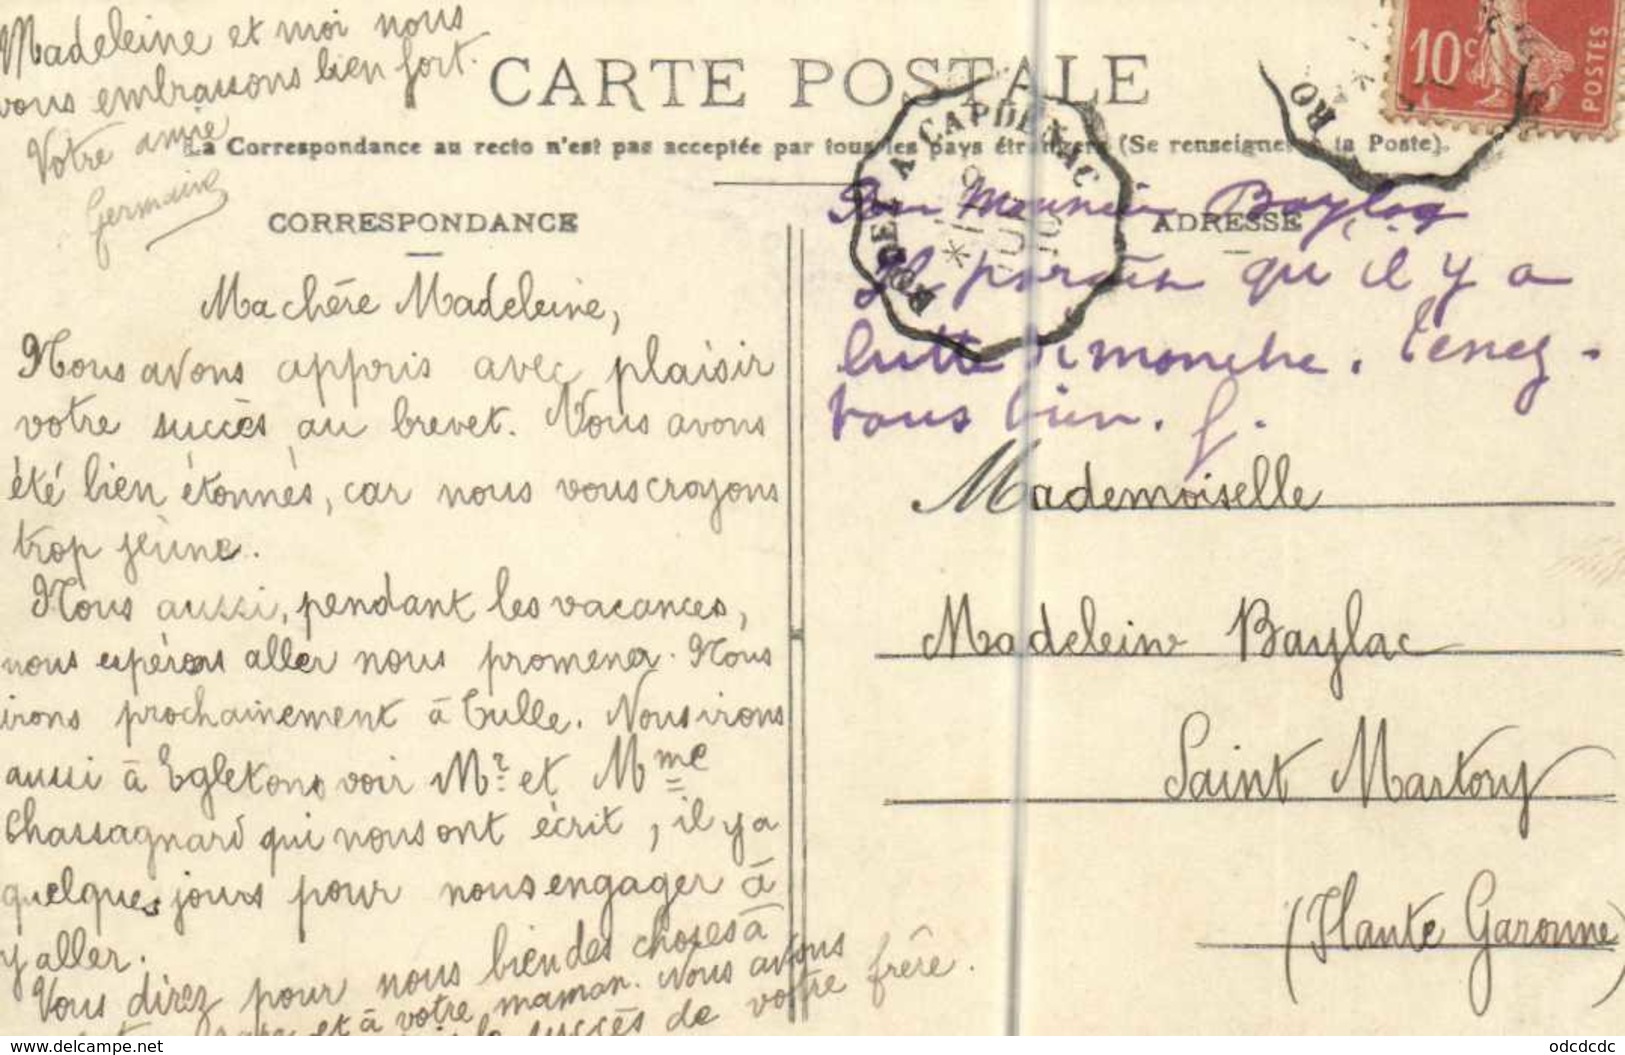 Madeleine et moi nous
vous embrassons bien fort.
Votre amie
Germaine
CARTE POSTALE
La Correspondance au recto n'est pas acceptée par tous les pays étrangers (Se renseigner à la Poste).
CORRESPONDANCE
Ma chère Madeleine,
Nous avons appris avec plaisir
votre succès au brevet. Nous avons
été bien étonnés, car nous vous croyons
trop jeune.
Nous aussi, pendant les vacances,
nous espérons aller nous promener. Nous
irons prochainement à Tulle. Nous irons
aussi à Egletons voir Mr et Mme
Chassagnard qui nous ont écrit, il y a
quelques jours pour nous engager à
y aller.
Vous direz pour nous bien des choses à
et à votre maman. Nous avons
succès de votre frère.
10c
POSTES
RODEZ A CAPDENAC
RO
ADRESSE
Pour Monsieur Baylac
Il parait qu'il y a
lutte Dimanche. Tenez-
vous bien. G.
Mademoiselle
Madeleine Baylac
Saint Martory
(Haute Garonne)
www.delcampe.net
odcdcdc